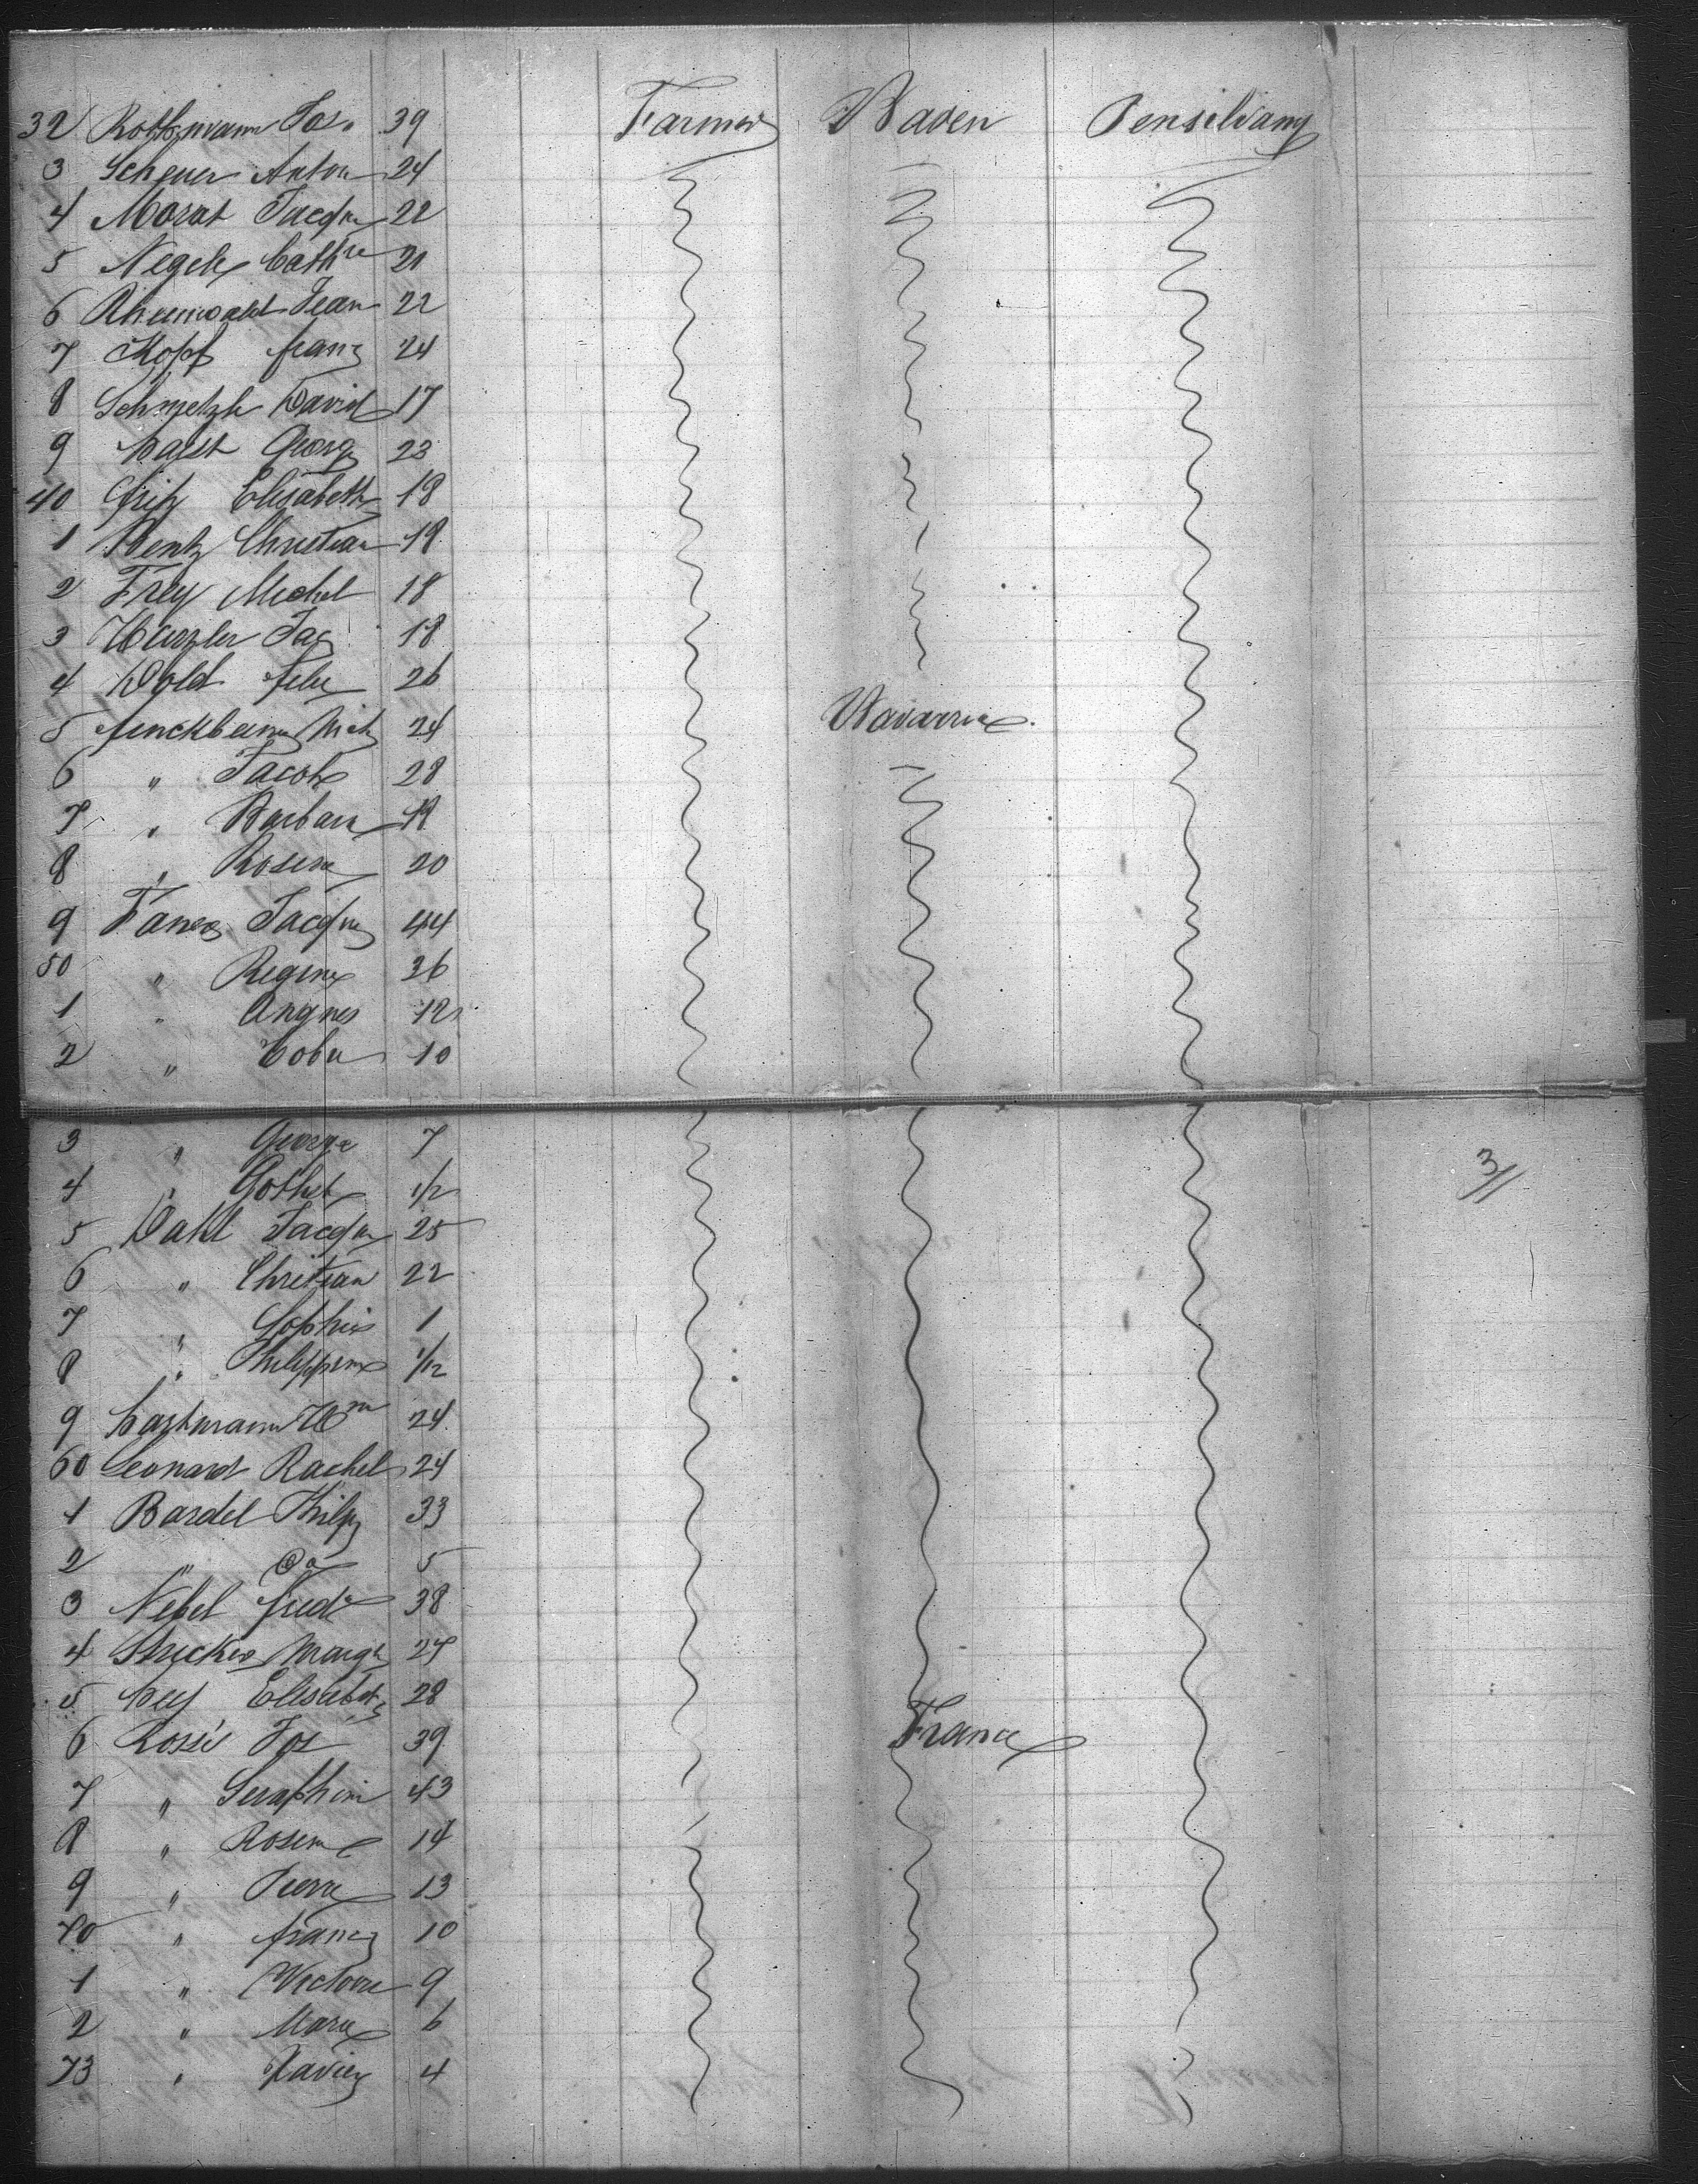 32 Rottmann Jos. 39 Farmer Baden Pensilvany
3 Scheuer Anton 24
4 Morat Jacques 22
5 Negele Cathne 21
6 Jean 22
7 Kopf franz 24
8 Schmetzle David 17
9 George 23
40 Elisabeth 18
1 Bentz Christian 19
2 Frey Michel 18
3 Wurzler Jac 18
4 Dold 26
5 24 Bavaria
6 " Jacob 28
7 " Barbara 19
8 " Rosine 20
9 Jacques 44
50 " Regine 36
1 " Angnes 12
2 " 10
3 " George 7
4 " 1/2 3/1
5 Dahl Jacques 25
6 " Chritian 22
7 " Sophie 1
8 " Philippine 1/12
9 Hartmann Wm 24
60 Leonard Rachel 24
1 Bardel Philip 33
2 " Do 5
3 Nebel fredr 38
4 Stricker Margt 27
5 Hey Elisabeth 28
6 Rossé Jos 39 France
7 " Seraphim 43
8 " Rosine 14
9 " Pierre 13
70 " franz 10
1 " Victoire 9
2 " Marie 6
73 " Xavier 4